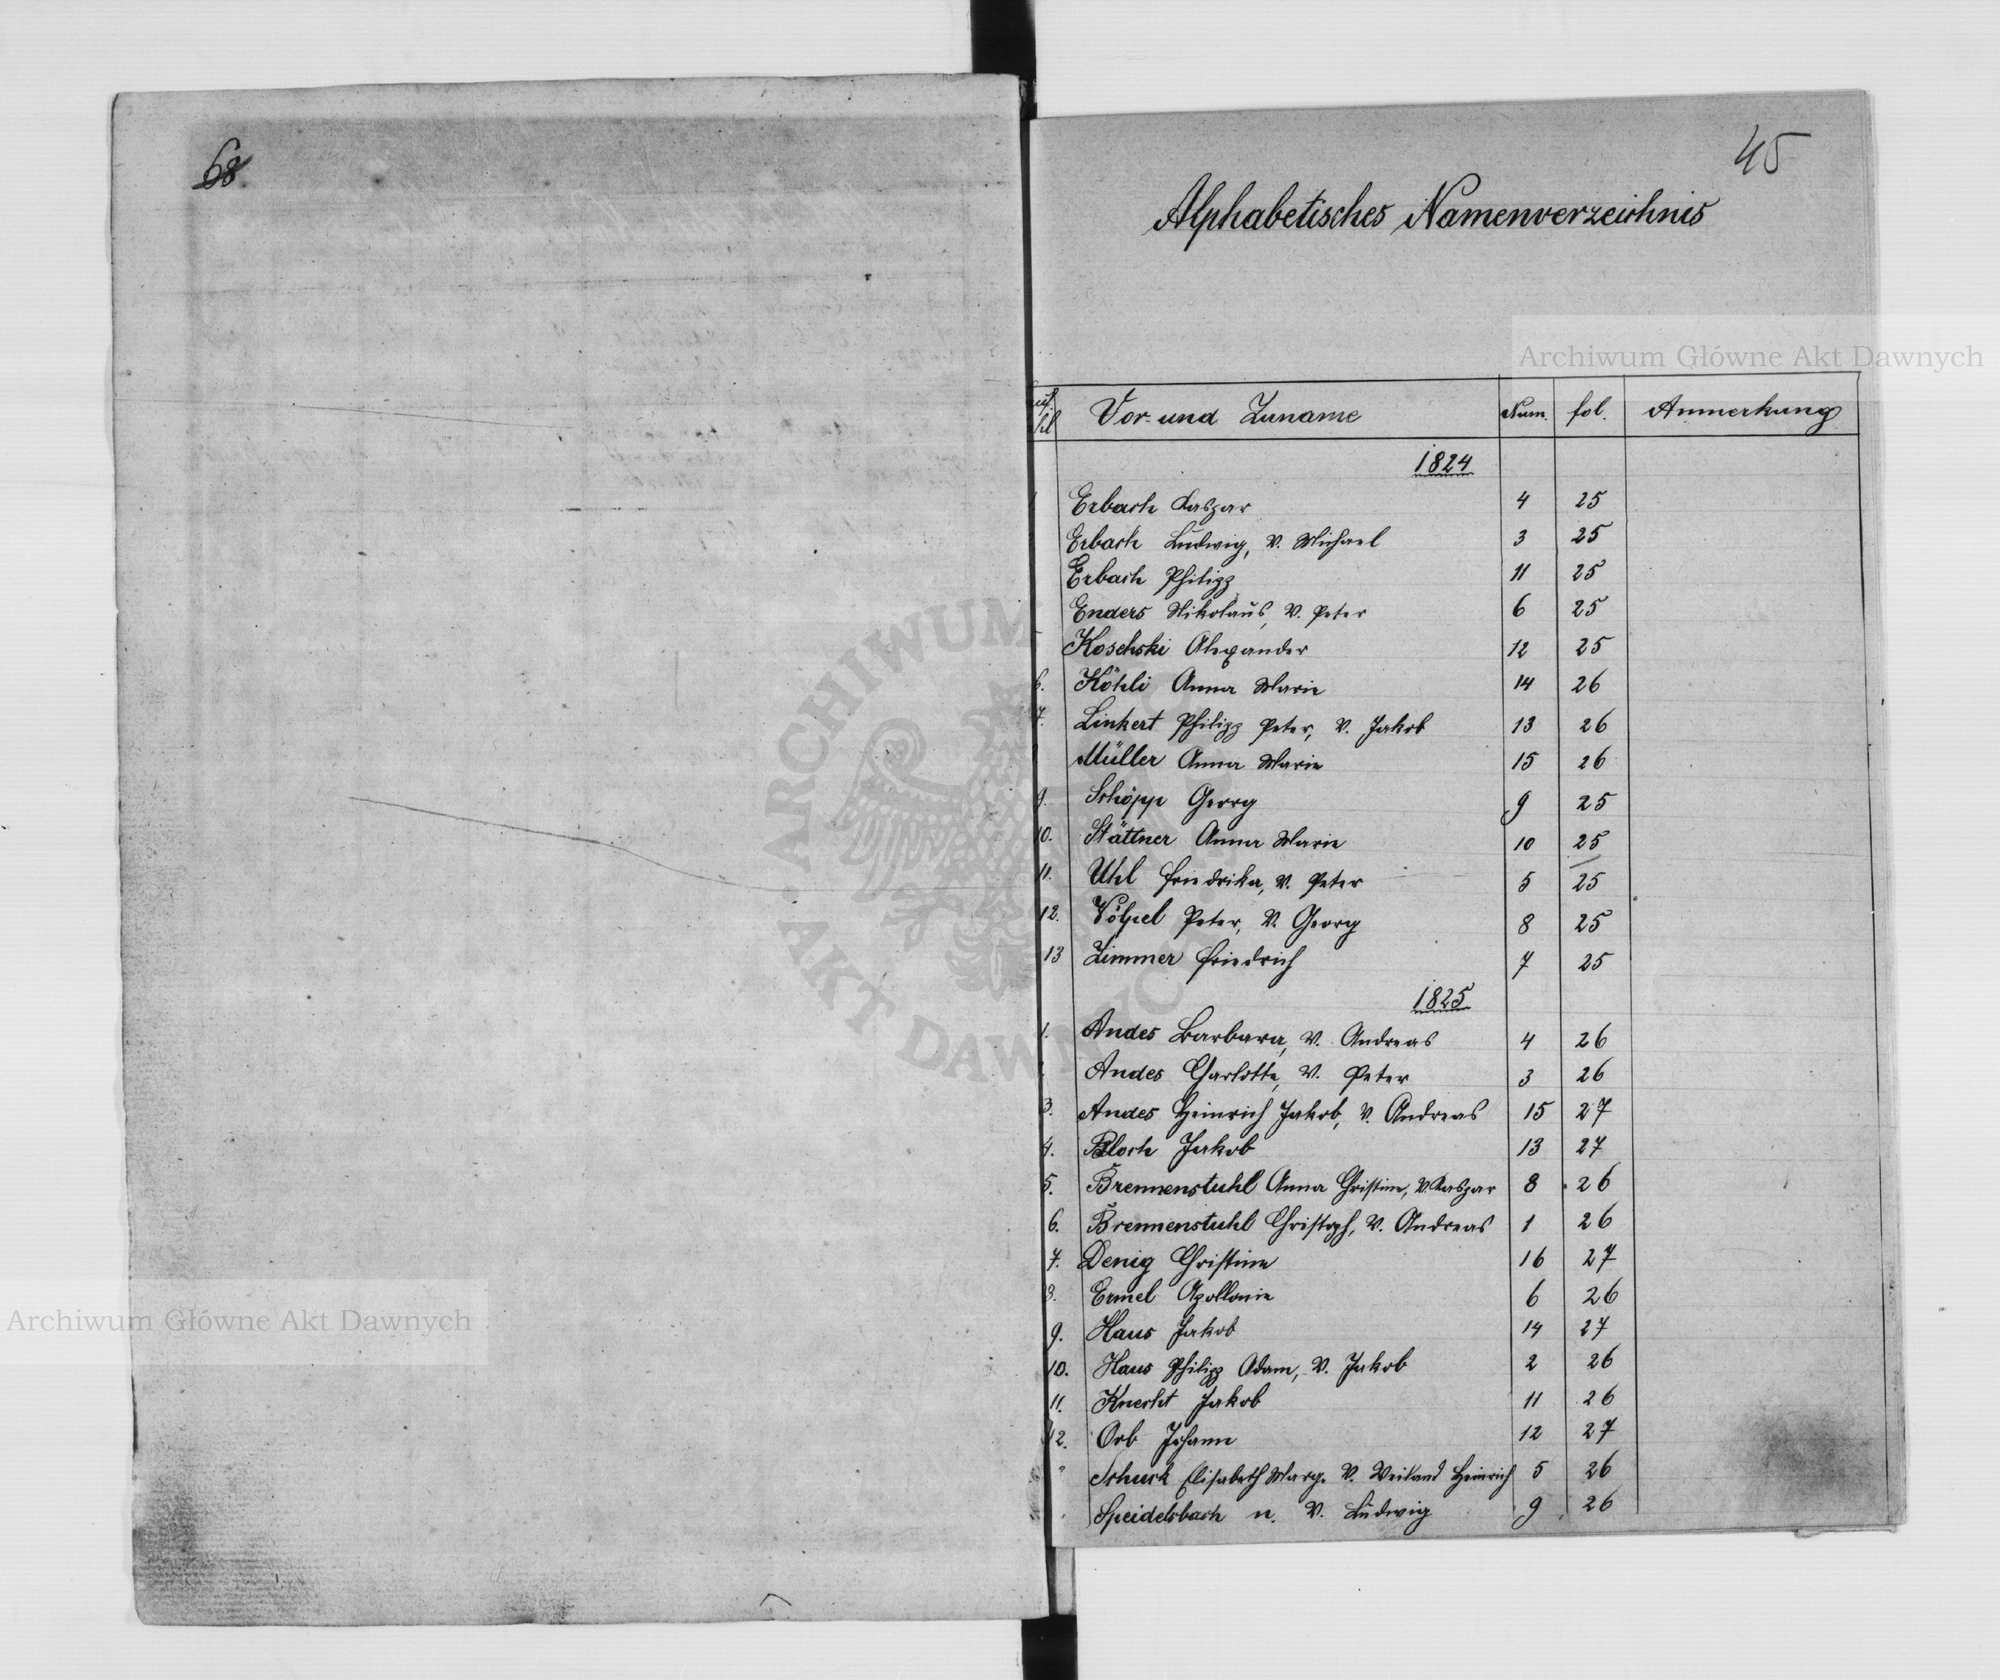 68
45
Alphabetisches Namenverzeichnis
Vor- und Zuname Num. fol. Anmerkung
1824
Erbach Kaspar 4 25
Erbach Ludwig, V. Michael 3 25
Erbach Philipp 11 25
Enders Nikolaus, V. Peter 6 25
Koschski Alexander 12 25
6. Köhli Anna Marie 14 26
7. Linkert Philipp Peter, V. Jakob 13 26
Müller Anna Marie 15 26
9. Schöpp Georg 9 25
10. Stättner Anna Marie 10 25
11. Uhl Friedrika, V. Peter 5 25
12. Völpel Peter, V. Georg 8 25
13 Zimmer Friedrich 7 25
1825
1. Andes Barbara, V. Andreas 4 26
Andes Charlotte, V. Peter 3 26
3. Andes Heinrich Jakob, V. Andreas 15 27
4. Bloch Jakob 13 27
5. Brennenstuhl Anna Christine, V. Kaspar 8 26
6. Brennenstuhl Christoph, V. Andreas 1 26
7. Denig Christine 16 27
8. Ermel Apollonie 6 26
9. Haus Jakob 14 27
10. Haus Philipp Adam, V. Jakob 2 26
11. Knecht Jakob 11 26
12. Orb Johann 12 27
Schuck Elisabeth Marg. V. Weiland Heinrich 5 26
Speidelsbach n. V. Ludwig 9 26
Archiwum Główne Akt Dawnych
Archiwum Główne Akt Dawnych
ARCHIWUM
AKT DAWNYCH